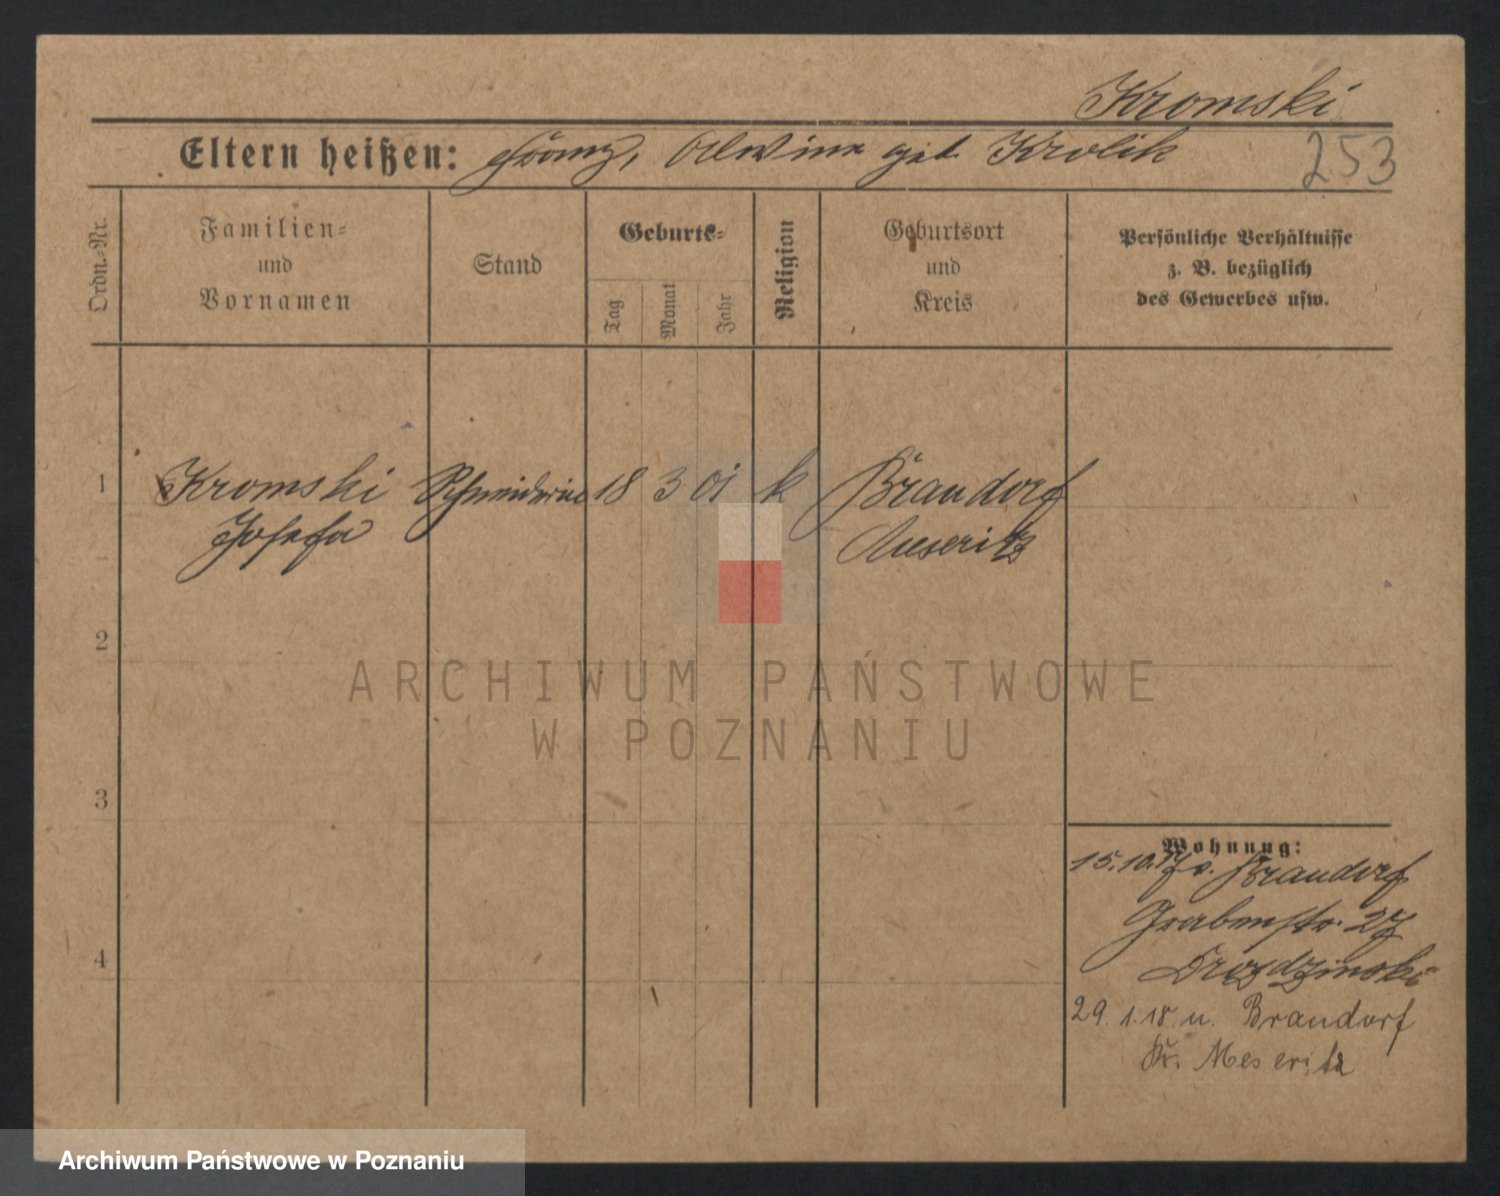 Kromski
Eltern heißen: Franz, Alwine geb. Krolik
253
Ordn.-Nr.
Familien-
und
Vornamen
Stand
Geburts-
Tag
Monat
Jahr
Religion
Geburtsort
und
Kreis
Persönliche Verhältnisse
z. B. bezüglich
des Gewerbes usw.
1 Kromski Schneiderin 18 3 01 k Brandorf
Josefa Meseritz
2
ARCHIWUM PAŃSTWOWE
W POZNANIU
3
Wohnung:
15.10.17 v. Brandorf
Grabenstr. 27
Drozdzinski
4
29.1.18 n. Brandorf
Kr. Meseritz
Archiwum Państwowe w Poznaniu